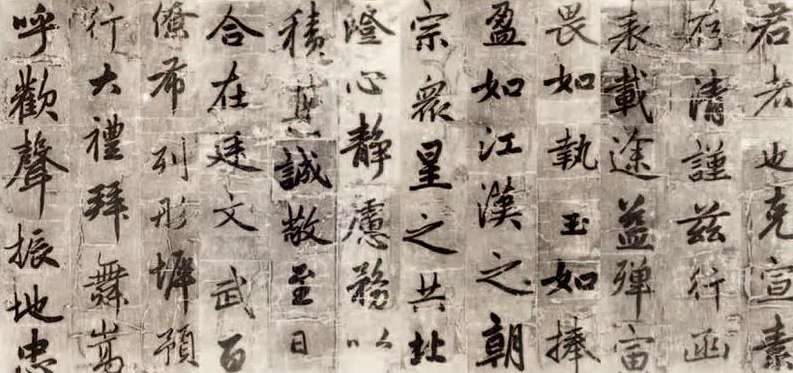 君者也克宣素
存清謹茲行函
表載途益殫寅
畏如執玉如捧
盈如江漢之朝
宗衆星之共北
澄心靜慮務以
積其誠敬至日
合在廷文武百
僚希列彤墀預
行大禮拜舞嵩
呼歡聲振地忠